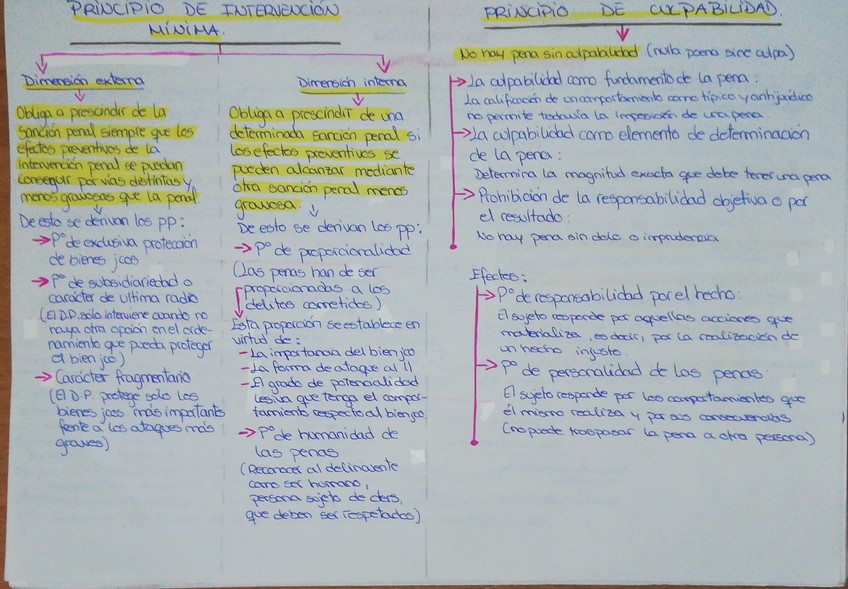 PRINCIPIO DE INTERVENCIÓN
MÍNIMA.
Dimensión externa
Obliga a prescindir de la
sanción penal siempre que los
efectos preventivos de la
intervención penal se puedan
conseguir por vías distintas y
menos gravosas que la penal
De esto se derivan los pp:
→ Pº de exclusiva protección
de bienes jcos
→ Pº de subsidiariedad o
carácter de ultima radio
(El D.P. solo interviene cuando no
haya otra opción en el orde-
namiento que pueda proteger
el bien jco)
→ Carácter fragmentario
(El D.P. protege solo los
bienes jcos más importantes
frente a los ataques más
graves)
Dimensión interna
Obliga a prescindir de una
determinada sanción penal si
los efectos preventivos se
pueden alcanzar mediante
otra sanción penal menos
gravosa
De esto se derivan los pp:
→ Pº de proporcionalidad
(Las penas han de ser
proporcionadas a los
delitos cometidos)
Esta proporción se establece en
virtud de:
- La importancia del bien jco
- La forma de ataque al 11
- El grado de potencialidad
lesiva que tenga el compor-
tamiento respecto al bien jco
→ Pº de humanidad de
las penas
(Reconocer al delincuente
como ser humano,
persona sujeto de ders,
que deben ser respetados)
PRINCIPIO DE CULPABILIDAD.
No hay pena sin culpabilidad (nulla poena sine culpa)
→ La culpabilidad como fundamento de la pena:
La calificación de un comportamiento como típico y antijurídico
no permite todavía la imposición de una pena
→ La culpabilidad como elemento de determinación
de la pena:
Determina la magnitud exacta que debe tener una pena
→ Prohibición de la responsabilidad objetiva o por
el resultado:
No hay pena sin dolo o imprudencia
Efectos:
→ Pº de responsabilidad por el hecho:
El sujeto responde por aquellas acciones que
materializa, es decir, por la realización de
un hecho injusto.
→ Pº de personalidad de las penas:
El sujeto responde por los comportamientos que
él mismo realiza y por sus consecuencias
(no puede traspasar la pena a otra persona)